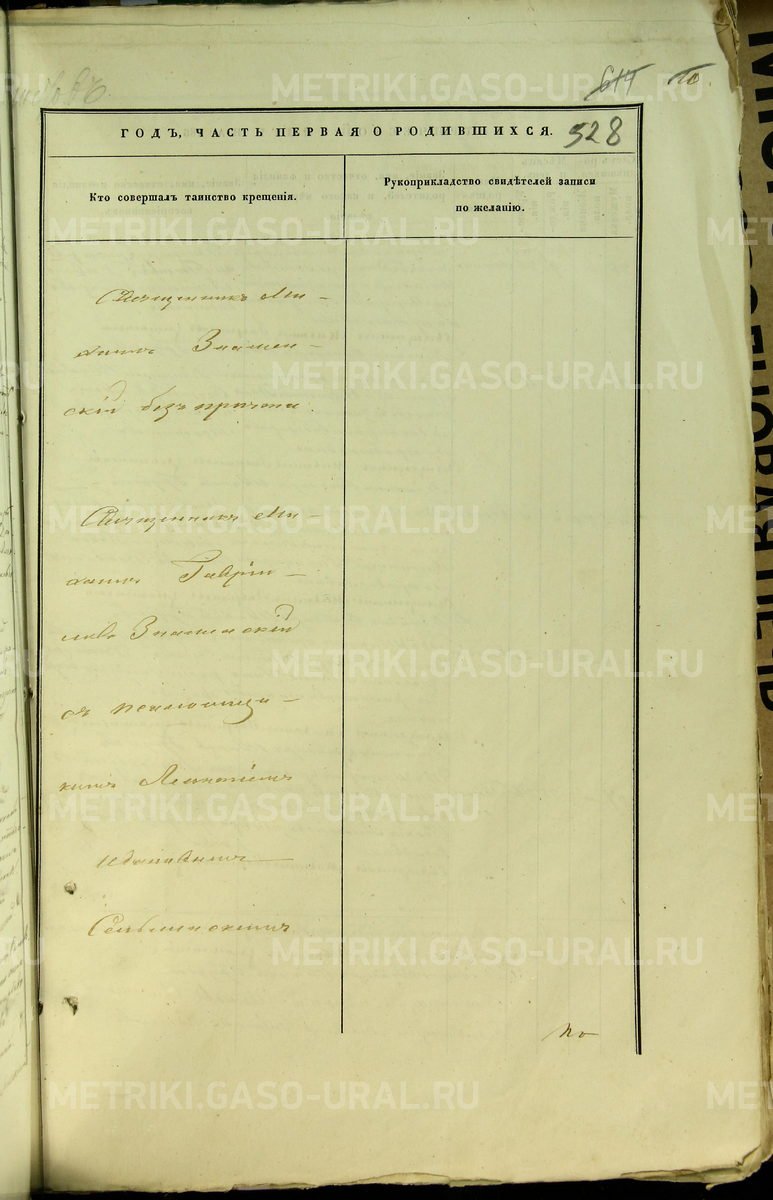 614 10.
ГОДЪ, ЧАСТЬ ПЕРВАЯ О РОДИВШИХСЯ.
528
Кто совершалъ таинство крещенія.
Рукоприкладство свидѣтелей записи
по желанію.
Священникъ Ми-
хаилъ Знамен-
скій безъ причта.
Священникъ Ми-
хаилъ Гаврiи-
ловъ Знаменскій
съ псаломщи-
комъ
Селѣменскимъ
По
METRIKI.GASO-URAL.RU